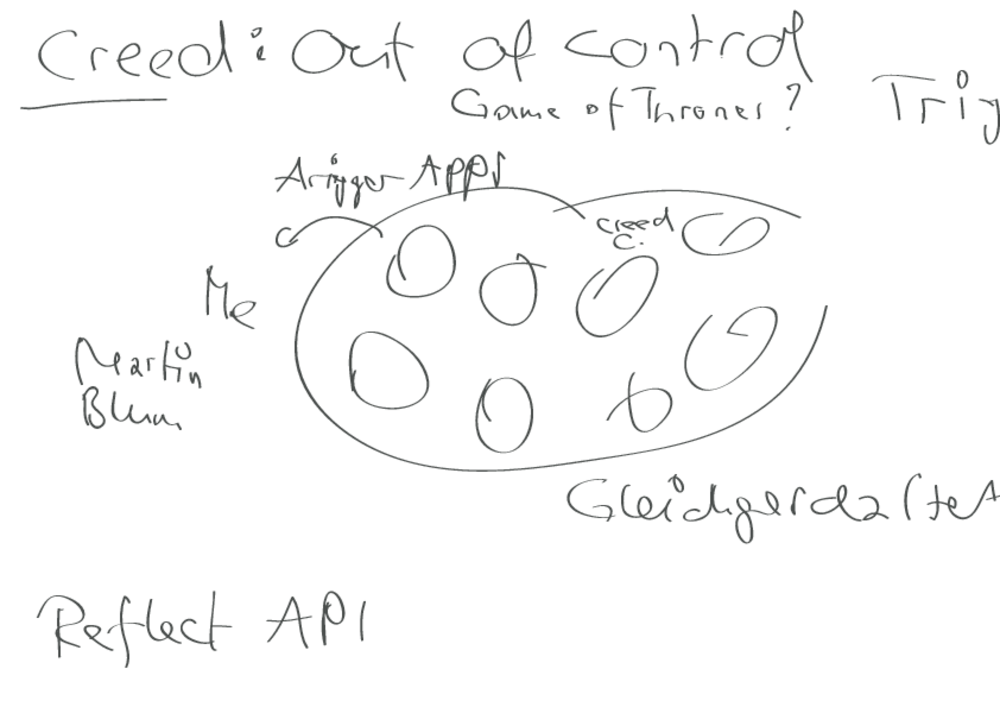 Creed: Out of control
Game of Thrones?
Trig
Arigger Apps
creed
C.
Me
Martin
Blum
Reflect API